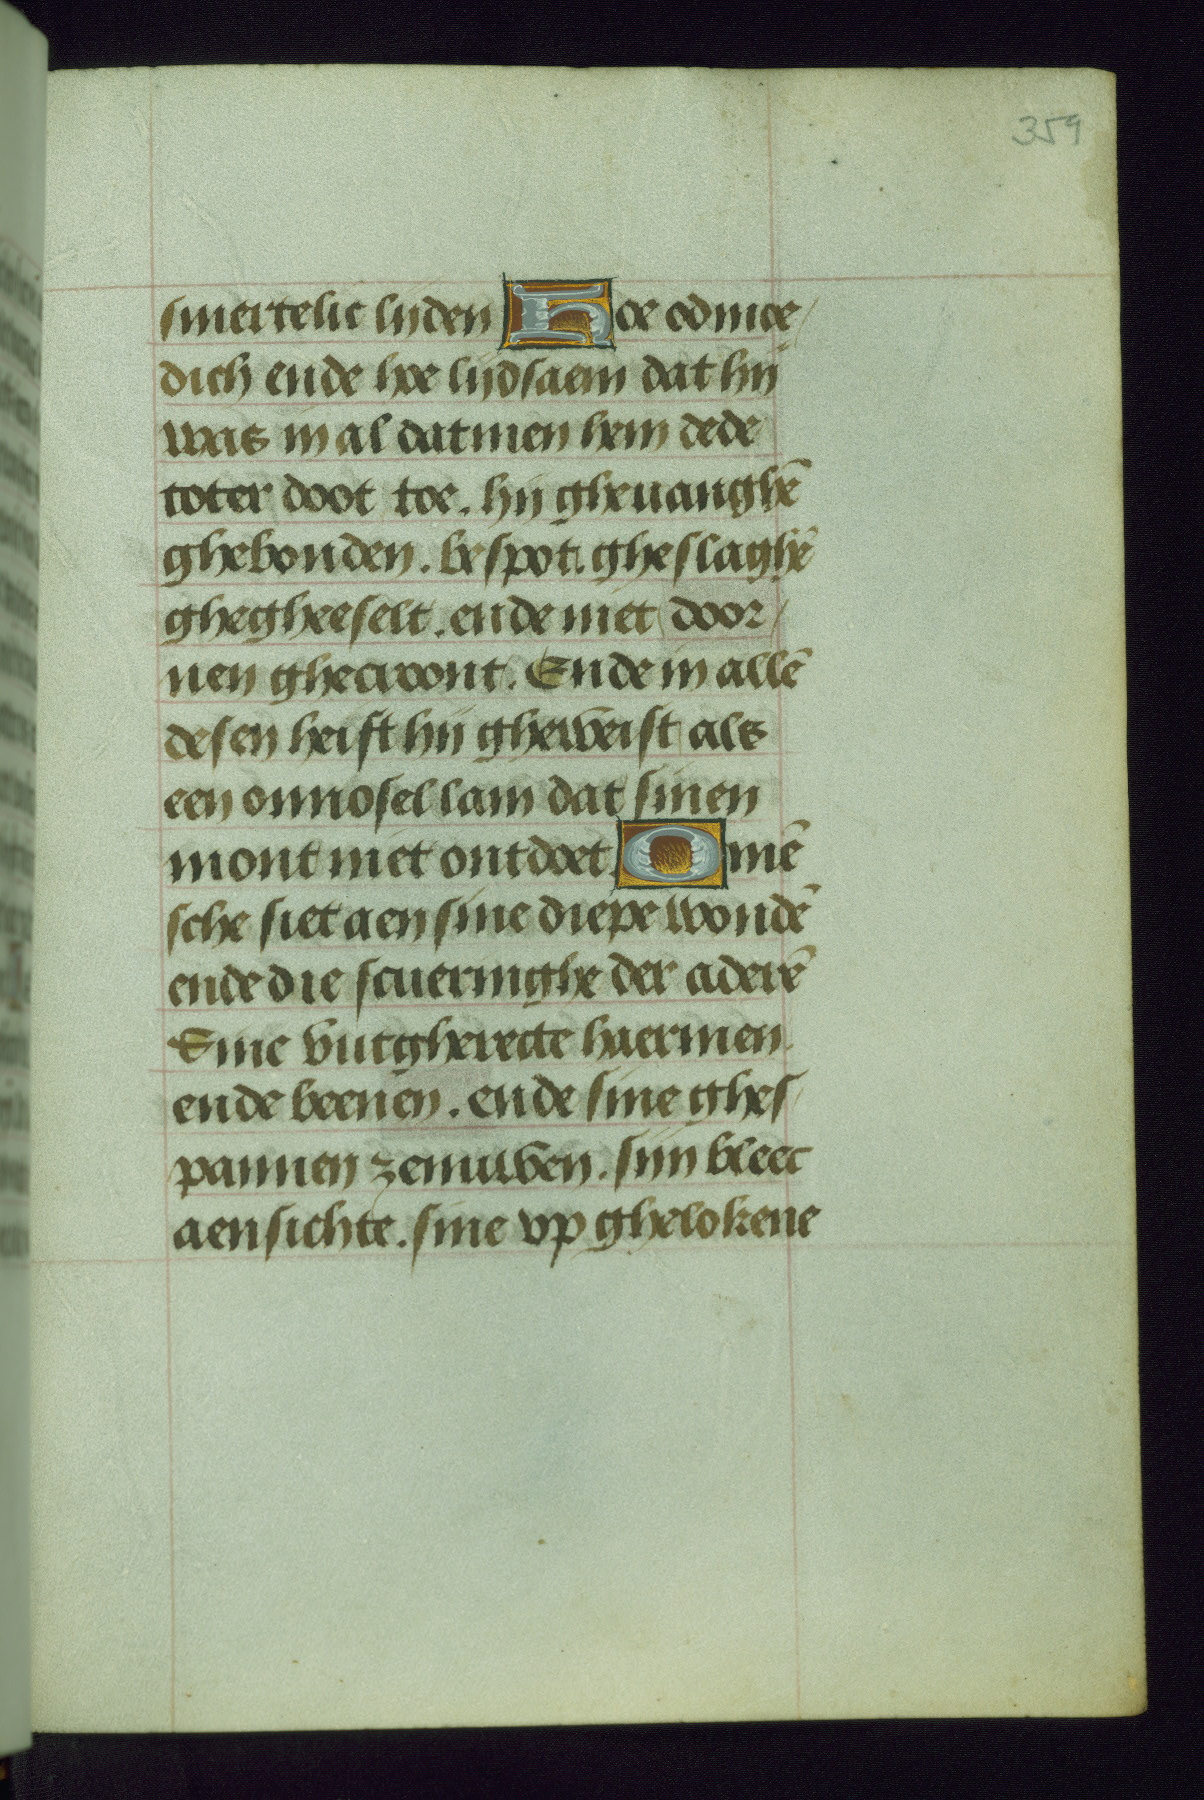 359
smertelic lijden Hoe odmoe/
dich ende hoe lijdsaem dat hij
was in al datmen hem dede
toter doot toe. hij gheuanghē
ghebonden. bespot. gheslaghē
ghegheeselt. ende met door/
nen ghecroont. Ende in allē
desen heift hij gheweist als
een onnosel lam dat sinen
mont niet ontdoet. O mē
sche siet aen sine diepe wondē
ende die scueringhe der aderē
Sine vutgherecte haermen
ende beenen. ende sine ghes/
pannen zenuwen. sijn bleec
aensichte. sine vp ghelokene